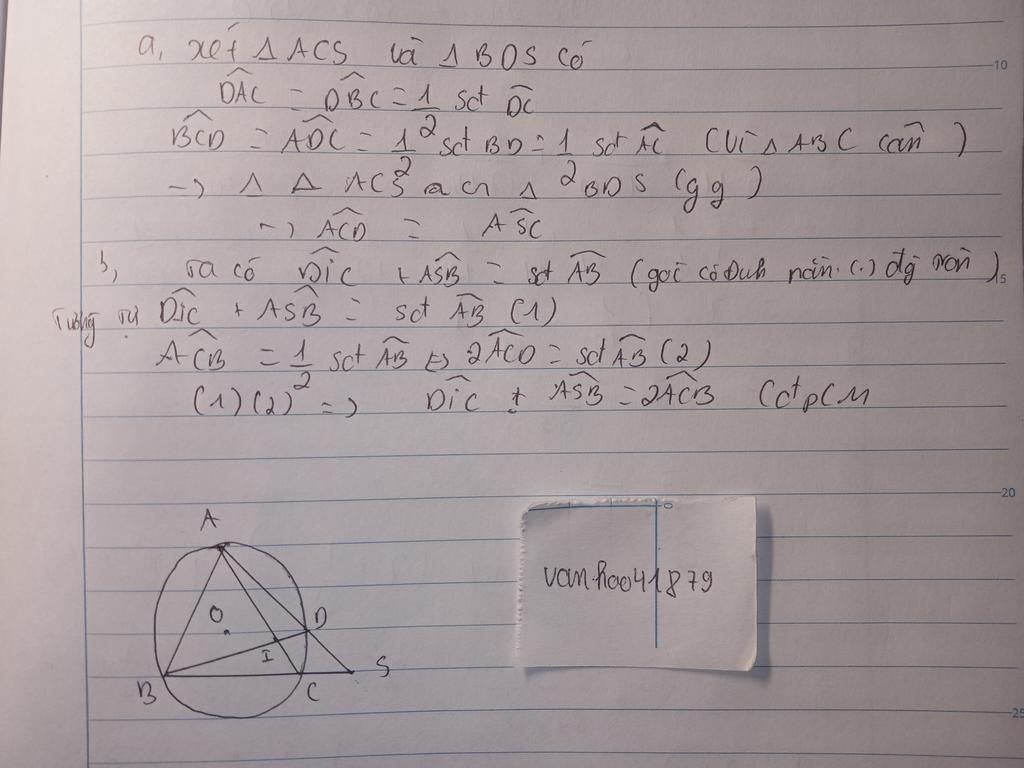 a, xét Δ ACS và Δ BDS có
DAC = DBC = 1/2 sđt DC
BCD = ADC = 1/2 sđt BD = 1/2 sđt AC (Vì Δ ABC cân)
-> Δ Δ ACS Δ BDS (gg)
-> ACD = ASC
b, ta có DIC + ASB = sđt AB (góc có đỉnh nằm (.) đg tròn)
Tương tự DIC + ASB = sđt AB (1)
ACB = 1/2 sđt AB <=> 2ACD = sđt AB (2)
(1)(2) => DIC + ASB = 2ACB (đpCM
A
O
D
I
S
B
C
van.hao041879
10
15
20
25